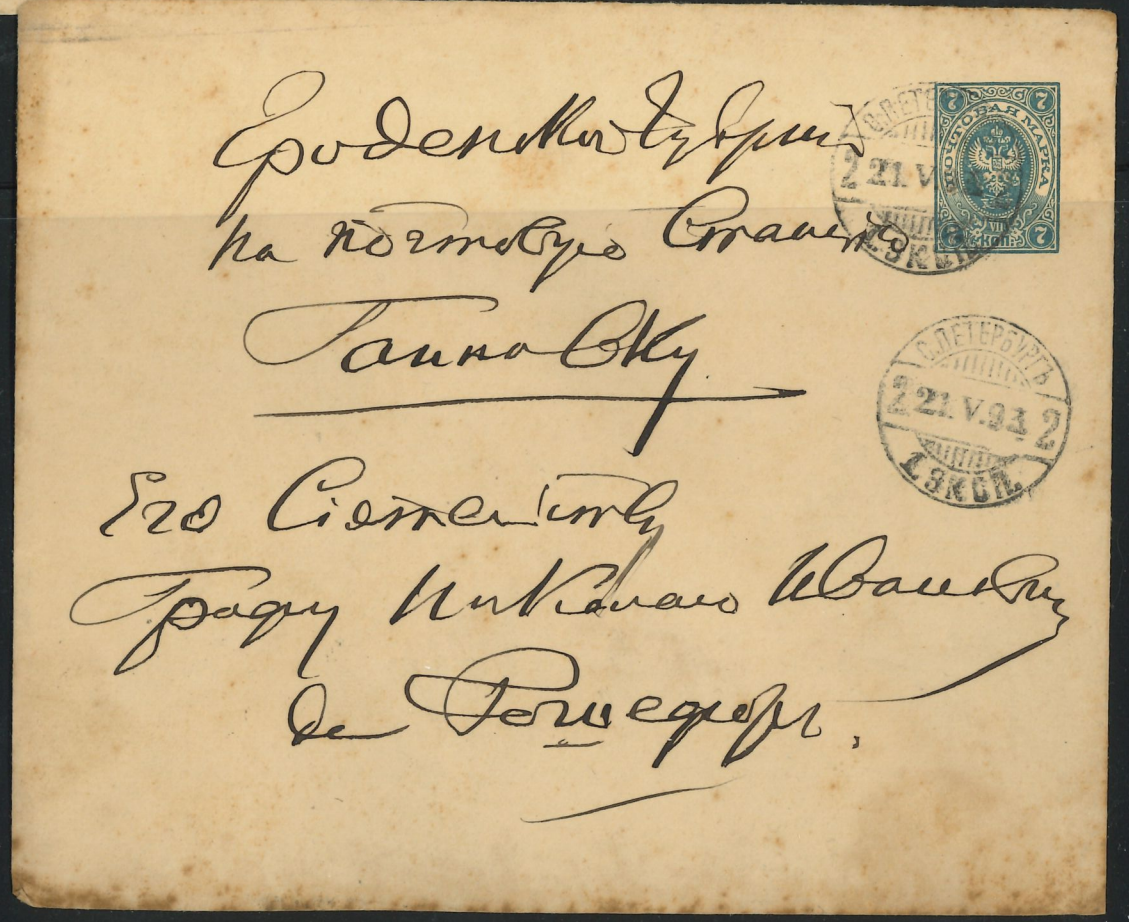 Гроденской Губернии
на почтовую Станцію
Гайновку
Его Сіятельству
Графу Николаю Ивановичу
де Рошефор.
7 7
ПОЧТОВАЯ МАРКА
VII
КОП:
7 7
С.ПЕТЕР
2 21. V
1 ЭКСП.
С.ПЕТЕРБУРГЪ
2 21. V. 93 2
1 ЭКСП.